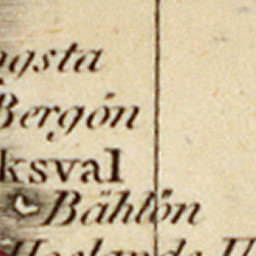 ngsta
Bergön
ksval
Bählön